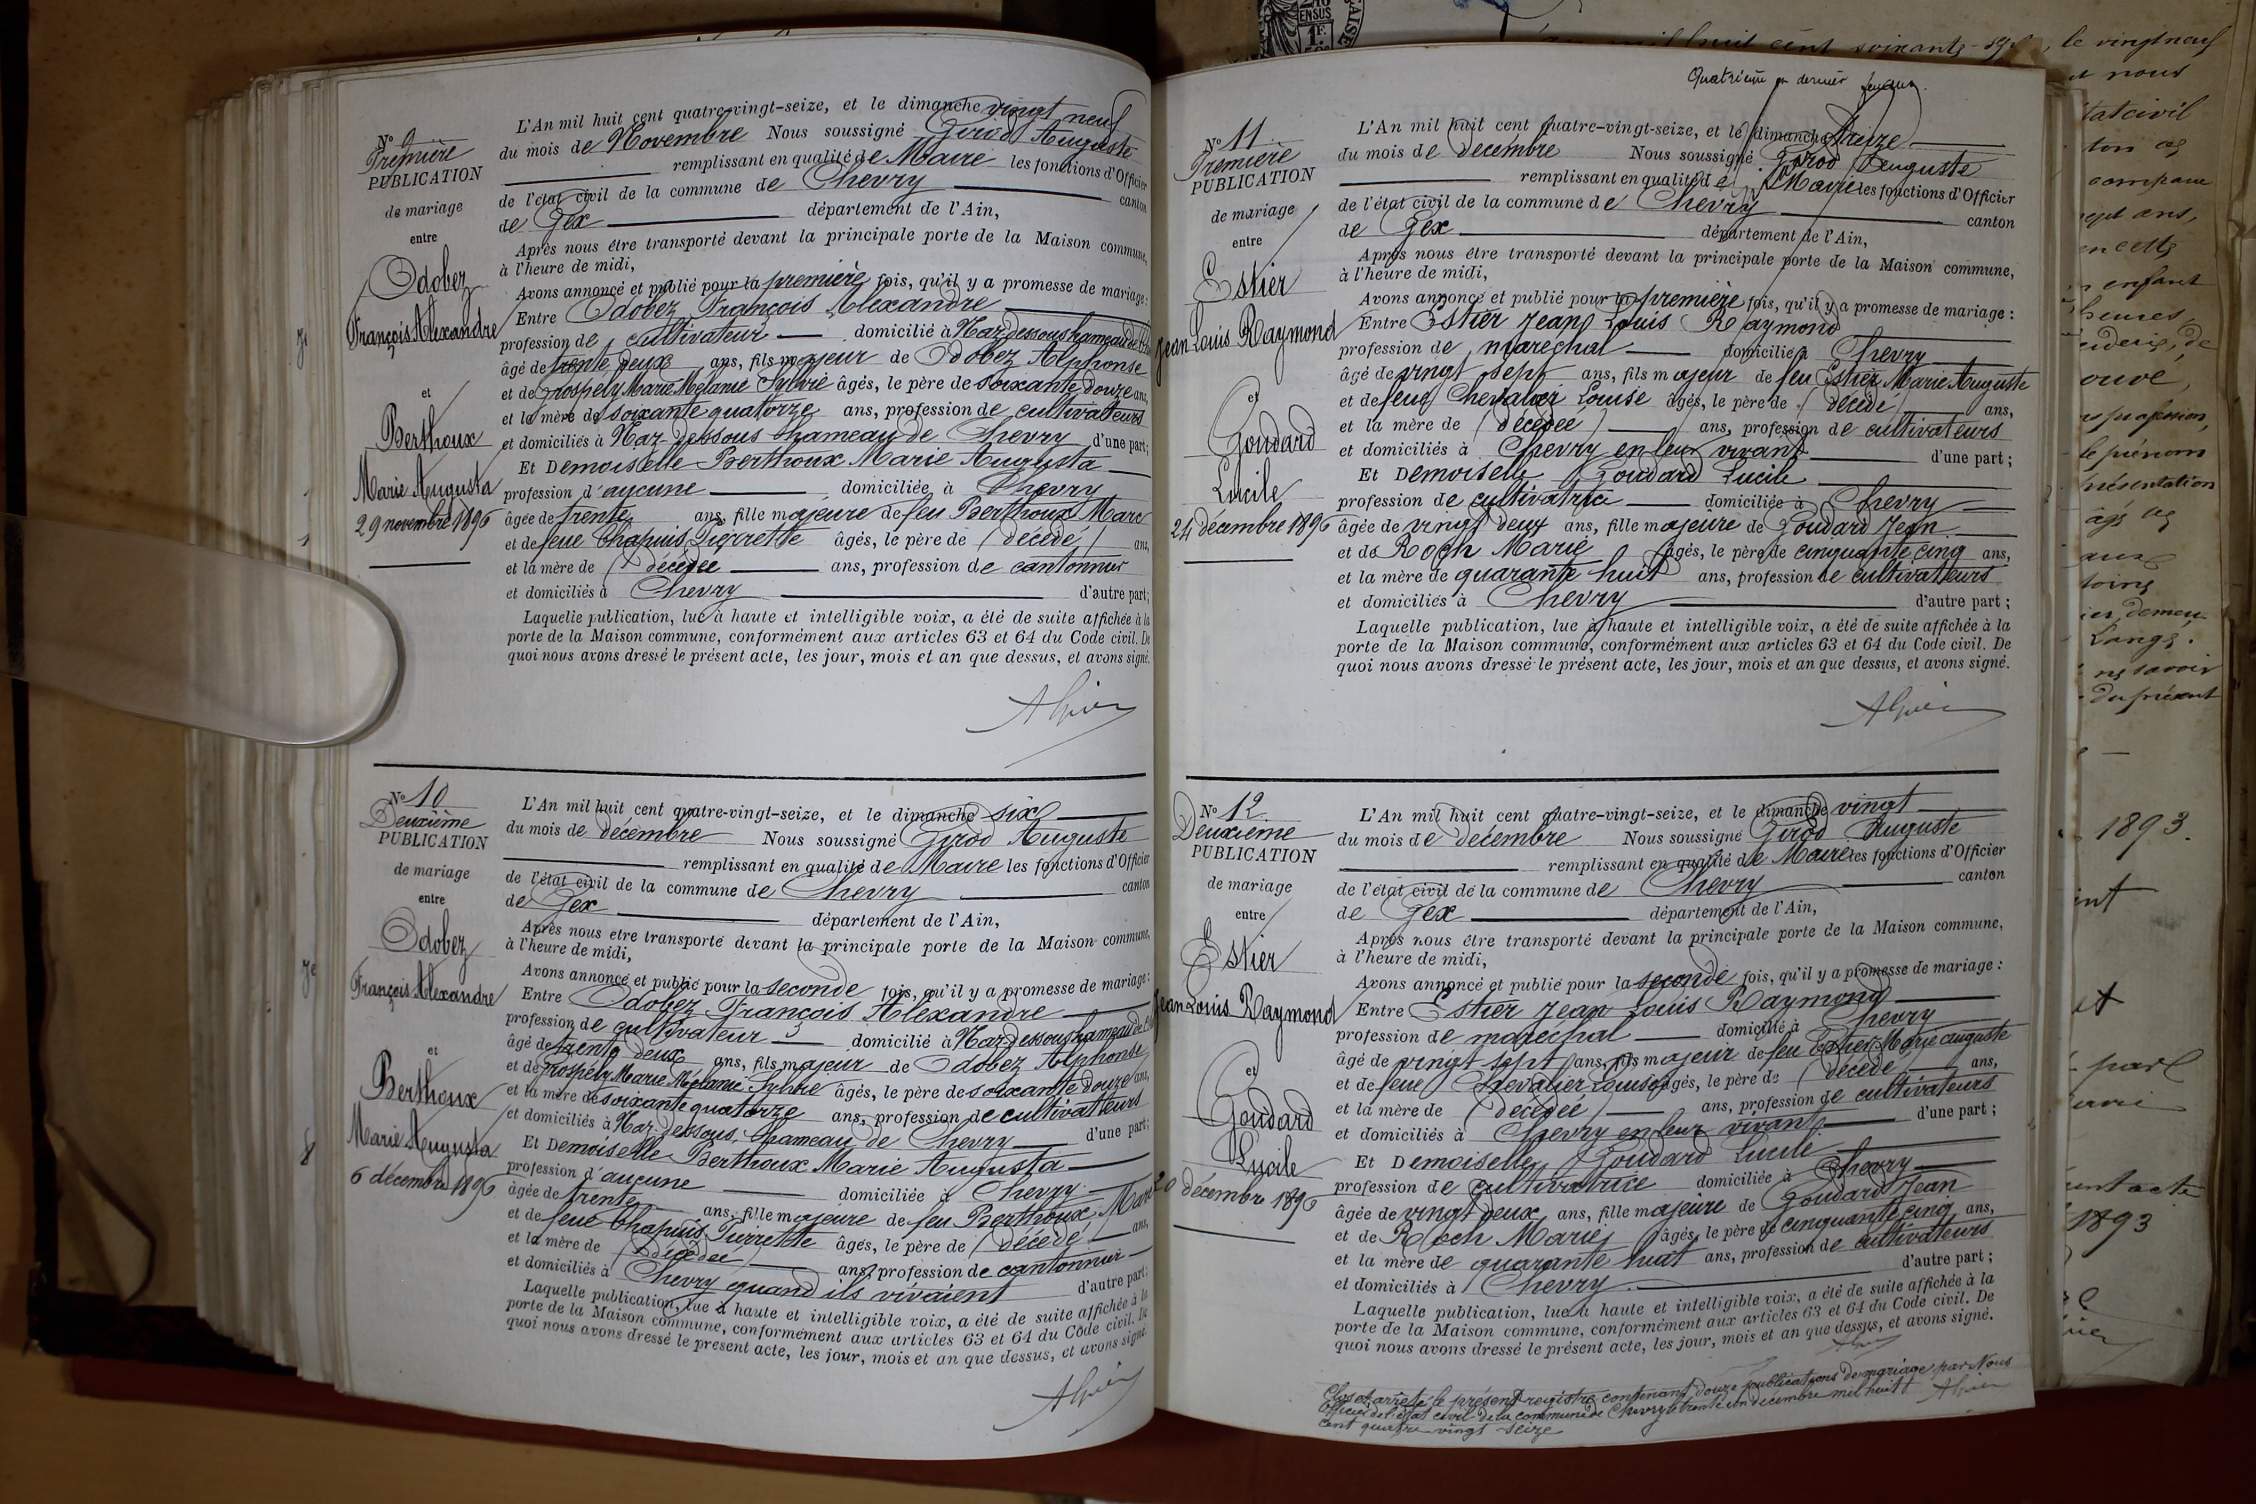 N° 9
Première
PUBLICATION
de mariage
entre
Odobez
François Alexandre
et
Berthoux
Marie Augusta
29 novembre 1896
L'An mil huit cent quatre-vingt-seize, et le dimanche vingt neuf
du mois de Novembre Nous soussigné Girod Auguste
remplissant en qualité de Maire les fonctions d'Officier
de l'état civil de la commune de Chevry canton
de Gex département de l'Ain,
Après nous être transporté devant la principale porte de la Maison commune,
à l'heure de midi,
Avons annoncé et publié pour la première fois, qu'il y a promesse de mariage :
Entre Odobez François Alexandre
profession de cultivateur domicilié à Naz dessous hameau de
âgé de trente deux ans, fils majeur de Odobez Alphonse
et de Prospéry Marie Mélanie Sylvie âgés, le père de soixante douze ans,
et la mère de soixante quatorze ans, profession de cultivateurs
et domiciliés à Naz-dessous hameau de Chevry d'une part;
Et Demoiselle Berthoux Marie Augusta
profession d'aucune domiciliée à Chevry
âgée de trente ans, fille majeure de feu Berthoux Marc
et de feue Chapuis Pierrette âgés, le père de (décédé) ans,
et la mère de (décédée ans, profession de cantonnier
et domiciliés à Chevry d'autre part;
Laquelle publication, lue à haute et intelligible voix, a été de suite affichée à la
porte de la Maison commune, conformément aux articles 63 et 64 du Code civil. De
quoi nous avons dressé le présent acte, les jour, mois et an que dessus, et avons signé.
N° 10
Deuxième
PUBLICATION
de mariage
entre
Odobez
François Alexandre
et
Berthoux
Marie Augusta
6 décembre 1896
L'An mil huit cent quatre-vingt-seize, et le dimanche six
du mois de décembre Nous soussigné Girod Auguste
remplissant en qualité de Maire les fonctions d'Officier
de l'état civil de la commune de Chevry canton
de Gex département de l'Ain,
Après nous être transporté devant la principale porte de la Maison commune,
à l'heure de midi,
Avons annoncé et publié pour la seconde fois, qu'il y a promesse de mariage :
Entre Odobez François Alexandre
profession de cultivateur domicilié à Naz dessous hameau de
âgé de trente deux ans, fils majeur de Odobez Alphonse
et de Prospéry Marie Mélanie Sylvie âgés, le père de soixante douze ans,
et la mère de soixante quatorze ans, profession de cultivateurs
et domiciliés à Naz-dessous, hameau de Chevry d'une part;
Et Demoiselle Berthoux Marie Augusta
profession d'aucune domiciliée à Chevry
âgée de trente ans, fille majeure de feu Berthoux Marc
et de feue Chapuis Pierrette âgés, le père de (décédé) ans,
et la mère de (décédée) ans, profession de cantonnier
et domiciliés à Chevry quand ils vivaient d'autre part;
Laquelle publication, lue à haute et intelligible voix, a été de suite affichée à la
porte de la Maison commune, conformément aux articles 63 et 64 du Code civil. De
quoi nous avons dressé le présent acte, les jour, mois et an que dessus, et avons signé.
Quatrième et dernier
N° 11
Première
PUBLICATION
de mariage
entre
Estier
Jean Louis Raymond
et
Goudard
Lucile
24 décembre 1896
L'An mil huit cent quatre-vingt-seize, et le dimanche treize
du mois de décembre Nous soussigné Girod Auguste
remplissant en qualité de Maire les fonctions d'Officier
de l'état civil de la commune de Chevry canton
de Gex département de l'Ain,
Après nous être transporté devant la principale porte de la Maison commune,
à l'heure de midi,
Avons annoncé et publié pour la première fois, qu'il y a promesse de mariage :
Entre Estier Jean Louis Raymond
profession de maréchal domicilié à Chevry
âgé de vingt sept ans, fils majeur de feu Estier Marie Auguste
et de feue Chevalier Louise âgés, le père de (décédé) ans,
et la mère de (décédée) ans, profession de cultivateurs
et domiciliés à Chevry en leur vivant d'une part;
Et Demoiselle Goudard Lucile
profession de cultivatrice domiciliée à Chevry
âgée de vingt deux ans, fille majeure de Goudard Jean
et de Roch Marie âgés, le père de cinquante cinq ans,
et la mère de quarante huit ans, profession de cultivateurs
et domiciliés à Chevry d'autre part;
Laquelle publication, lue à haute et intelligible voix, a été de suite affichée à la
porte de la Maison commune, conformément aux articles 63 et 64 du Code civil. De
quoi nous avons dressé le présent acte, les jour, mois et an que dessus, et avons signé.
N° 12
Deuxième
PUBLICATION
de mariage
entre
Estier
Jean Louis Raymond
et
Goudard
Lucile
20 décembre 1896
L'An mil huit cent quatre-vingt-seize, et le dimanche vingt
du mois de décembre Nous soussigné Girod Auguste
remplissant en qualité de Maire les fonctions d'Officier
de l'état civil de la commune de Chevry canton
de Gex département de l'Ain,
Après nous être transporté devant la principale porte de la Maison commune,
à l'heure de midi,
Avons annoncé et publié pour la seconde fois, qu'il y a promesse de mariage :
Entre Estier Jean Louis Raymond
profession de maréchal domicilié à Chevry
âgé de vingt sept ans, fils majeur de feu Estier Marie Auguste
et de feue Chevalier Louise âgés, le père de (décédé ans,
et la mère de (décédée) ans, profession de cultivateurs
et domiciliés à Chevry en leur vivant d'une part;
Et Demoiselle Goudard Lucile
profession de cultivatrice domiciliée à Chevry
âgée de vingt deux ans, fille majeure de Goudard Jean
et de Roch Marie âgés, le père de cinquante cinq ans,
et la mère de quarante huit ans, profession de cultivateurs
et domiciliés à Chevry d'autre part;
Laquelle publication, lue à haute et intelligible voix, a été de suite affichée à la
porte de la Maison commune, conformément aux articles 63 et 64 du Code civil. De
quoi nous avons dressé le présent acte, les jour, mois et an que dessus, et avons signé.
Clos et arrêté le présent registre contenant douze publications de mariage par Nous
Officier de l'état civil de la commune de Chevry le trente un décembre mil huit
cent quatre vingt-seize
le vingt neuf
nous
1893.
1893